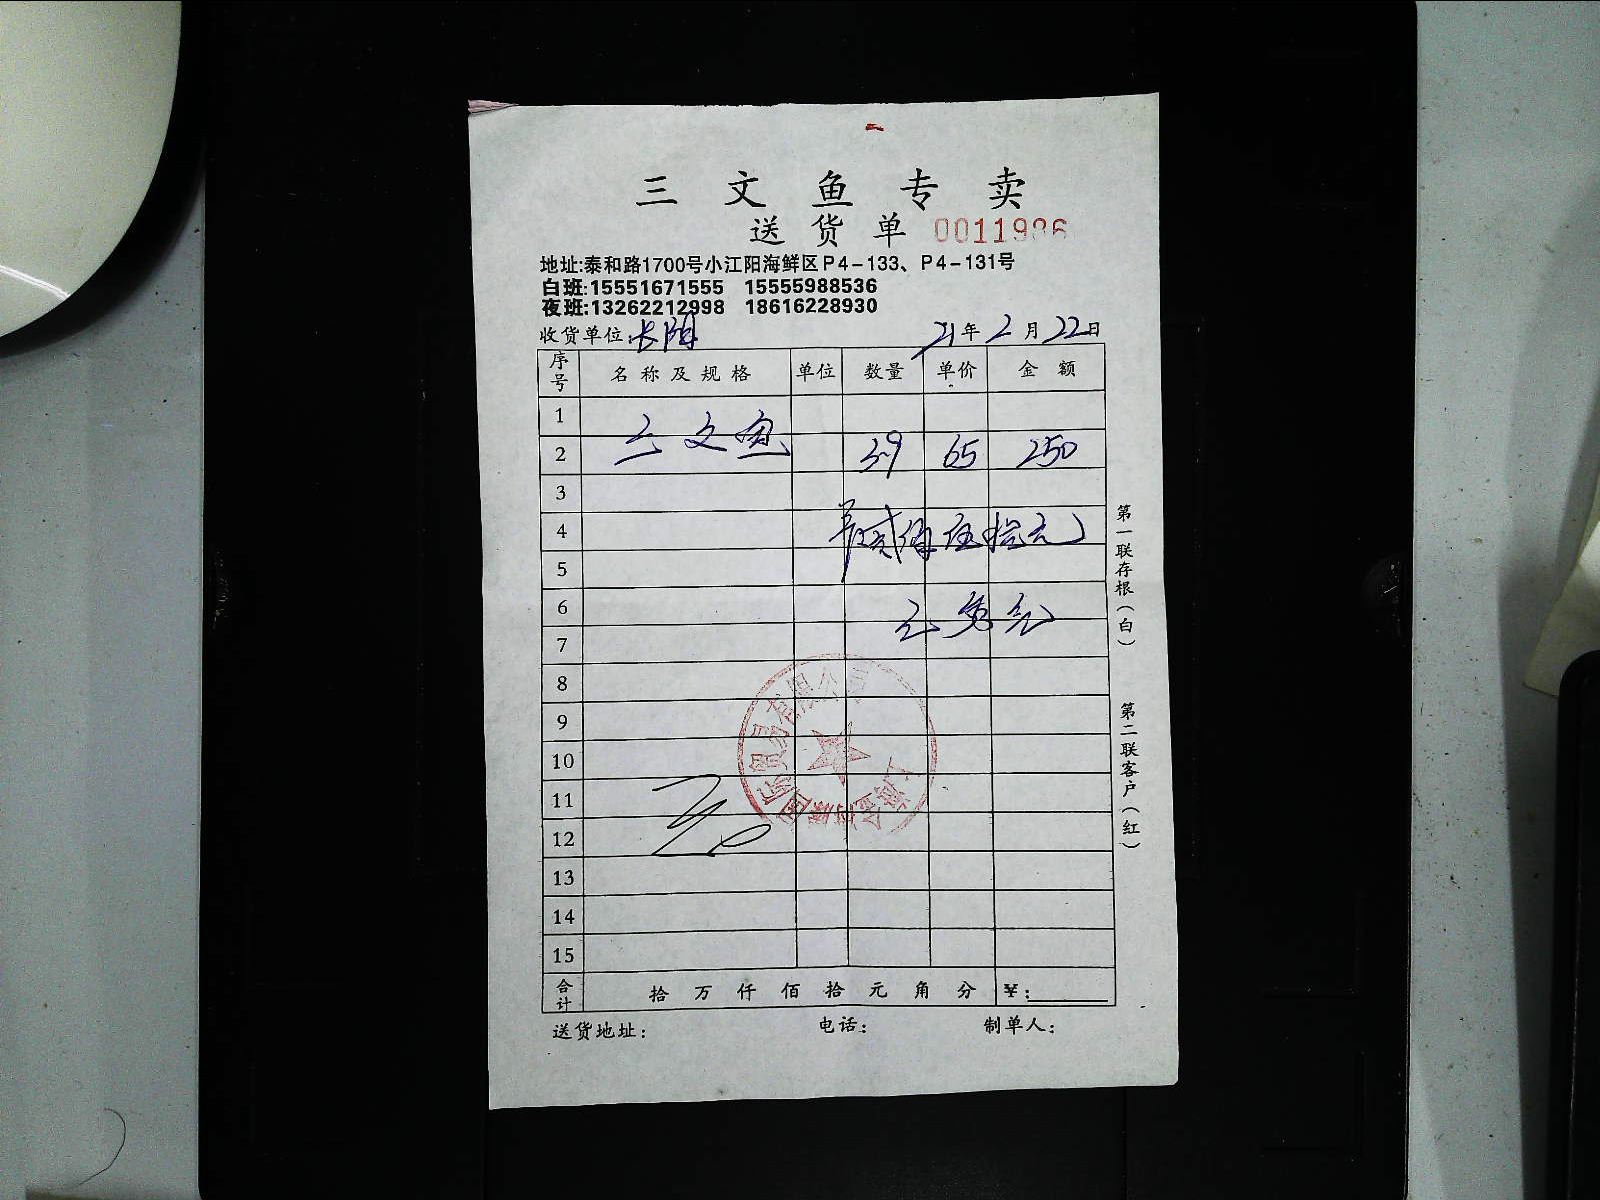 三文鱼专卖
送货单 0011986
地址:泰和路1700号小江阳海鲜区P4-133、P4-131号
白班:15551671555 15555988536
夜班:13262212998 18616228930
收货单位: 长阳 21年2月22日
序号 名称及规格 单位 数量 单价 金额
1
2 三文鱼 3.9 65 250
3
4 贰佰伍拾元
5
6
7
8
9
10
11
12
13
14
15
合计 拾万仟佰拾元角分 ¥:
送货地址: 电话: 制单人:
第一联存根(白)
第二联客户(红)
国际贸易有限公司